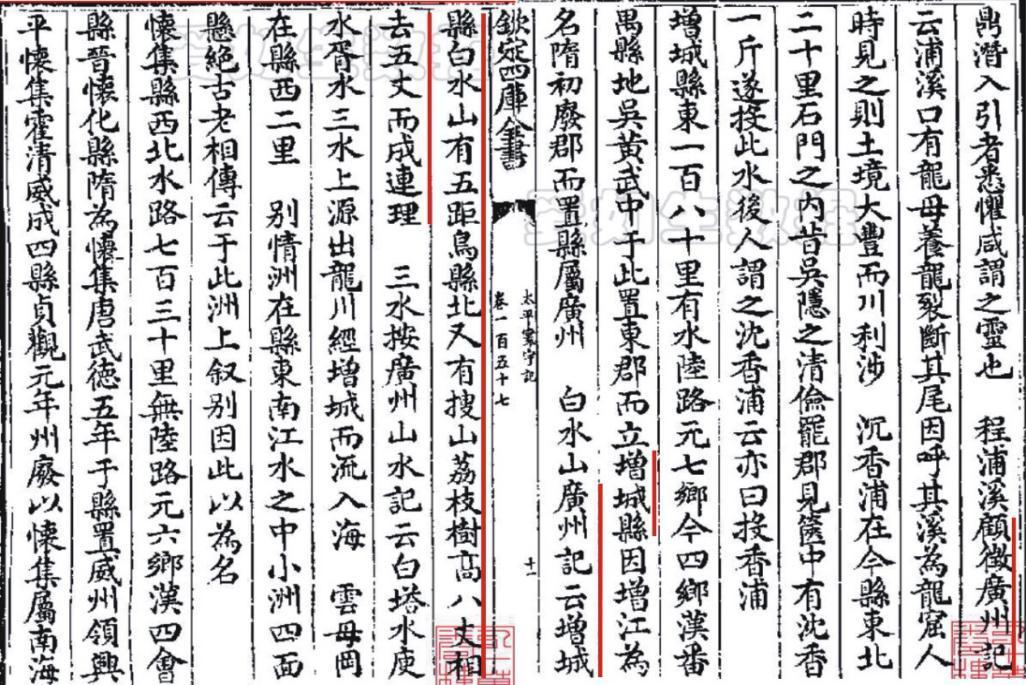 鼎潛入引者悉懼咸謂之靈也　程浦溪顧徵廣州記
云浦溪口有龍母養龍裂斷其尾因呼其溪為龍窟人
時見之則土境大豐而川利涉　沉香浦在今縣東北
二十里石門之内昔吳隱之清儉罷郡見篋中有沈香
一斤遂投此水後人謂之沈香浦云亦曰投香浦
增城縣東一百八十里有水陸路元七鄉今四鄉漢番
禺縣地吳黃武中于此置東郡而立增城縣因增江為
名隋初廢郡而置縣屬廣州　白水山廣州記云增城
欽定四庫全書
太平寰宇記
卷一百五十七
十一
縣白水山有五距鳥縣北又有搜山荔枝樹高八丈相
去五丈而成連理　三水按廣州山水記云白塔水庾
水胥水三水上源出龍川經增城而流入海　雲母岡
在縣西二里　别情洲在縣東南江水之中小洲四面
懸絕古老相傳云于此洲上叙别因此以為名
懷集縣西北水路七百三十里無陸路元六鄉漢四會
縣晉懷化縣隋為懷集唐武德五年于縣置威州領興
平懷集霍清威成四縣貞觀元年州廢以懷集屬南海